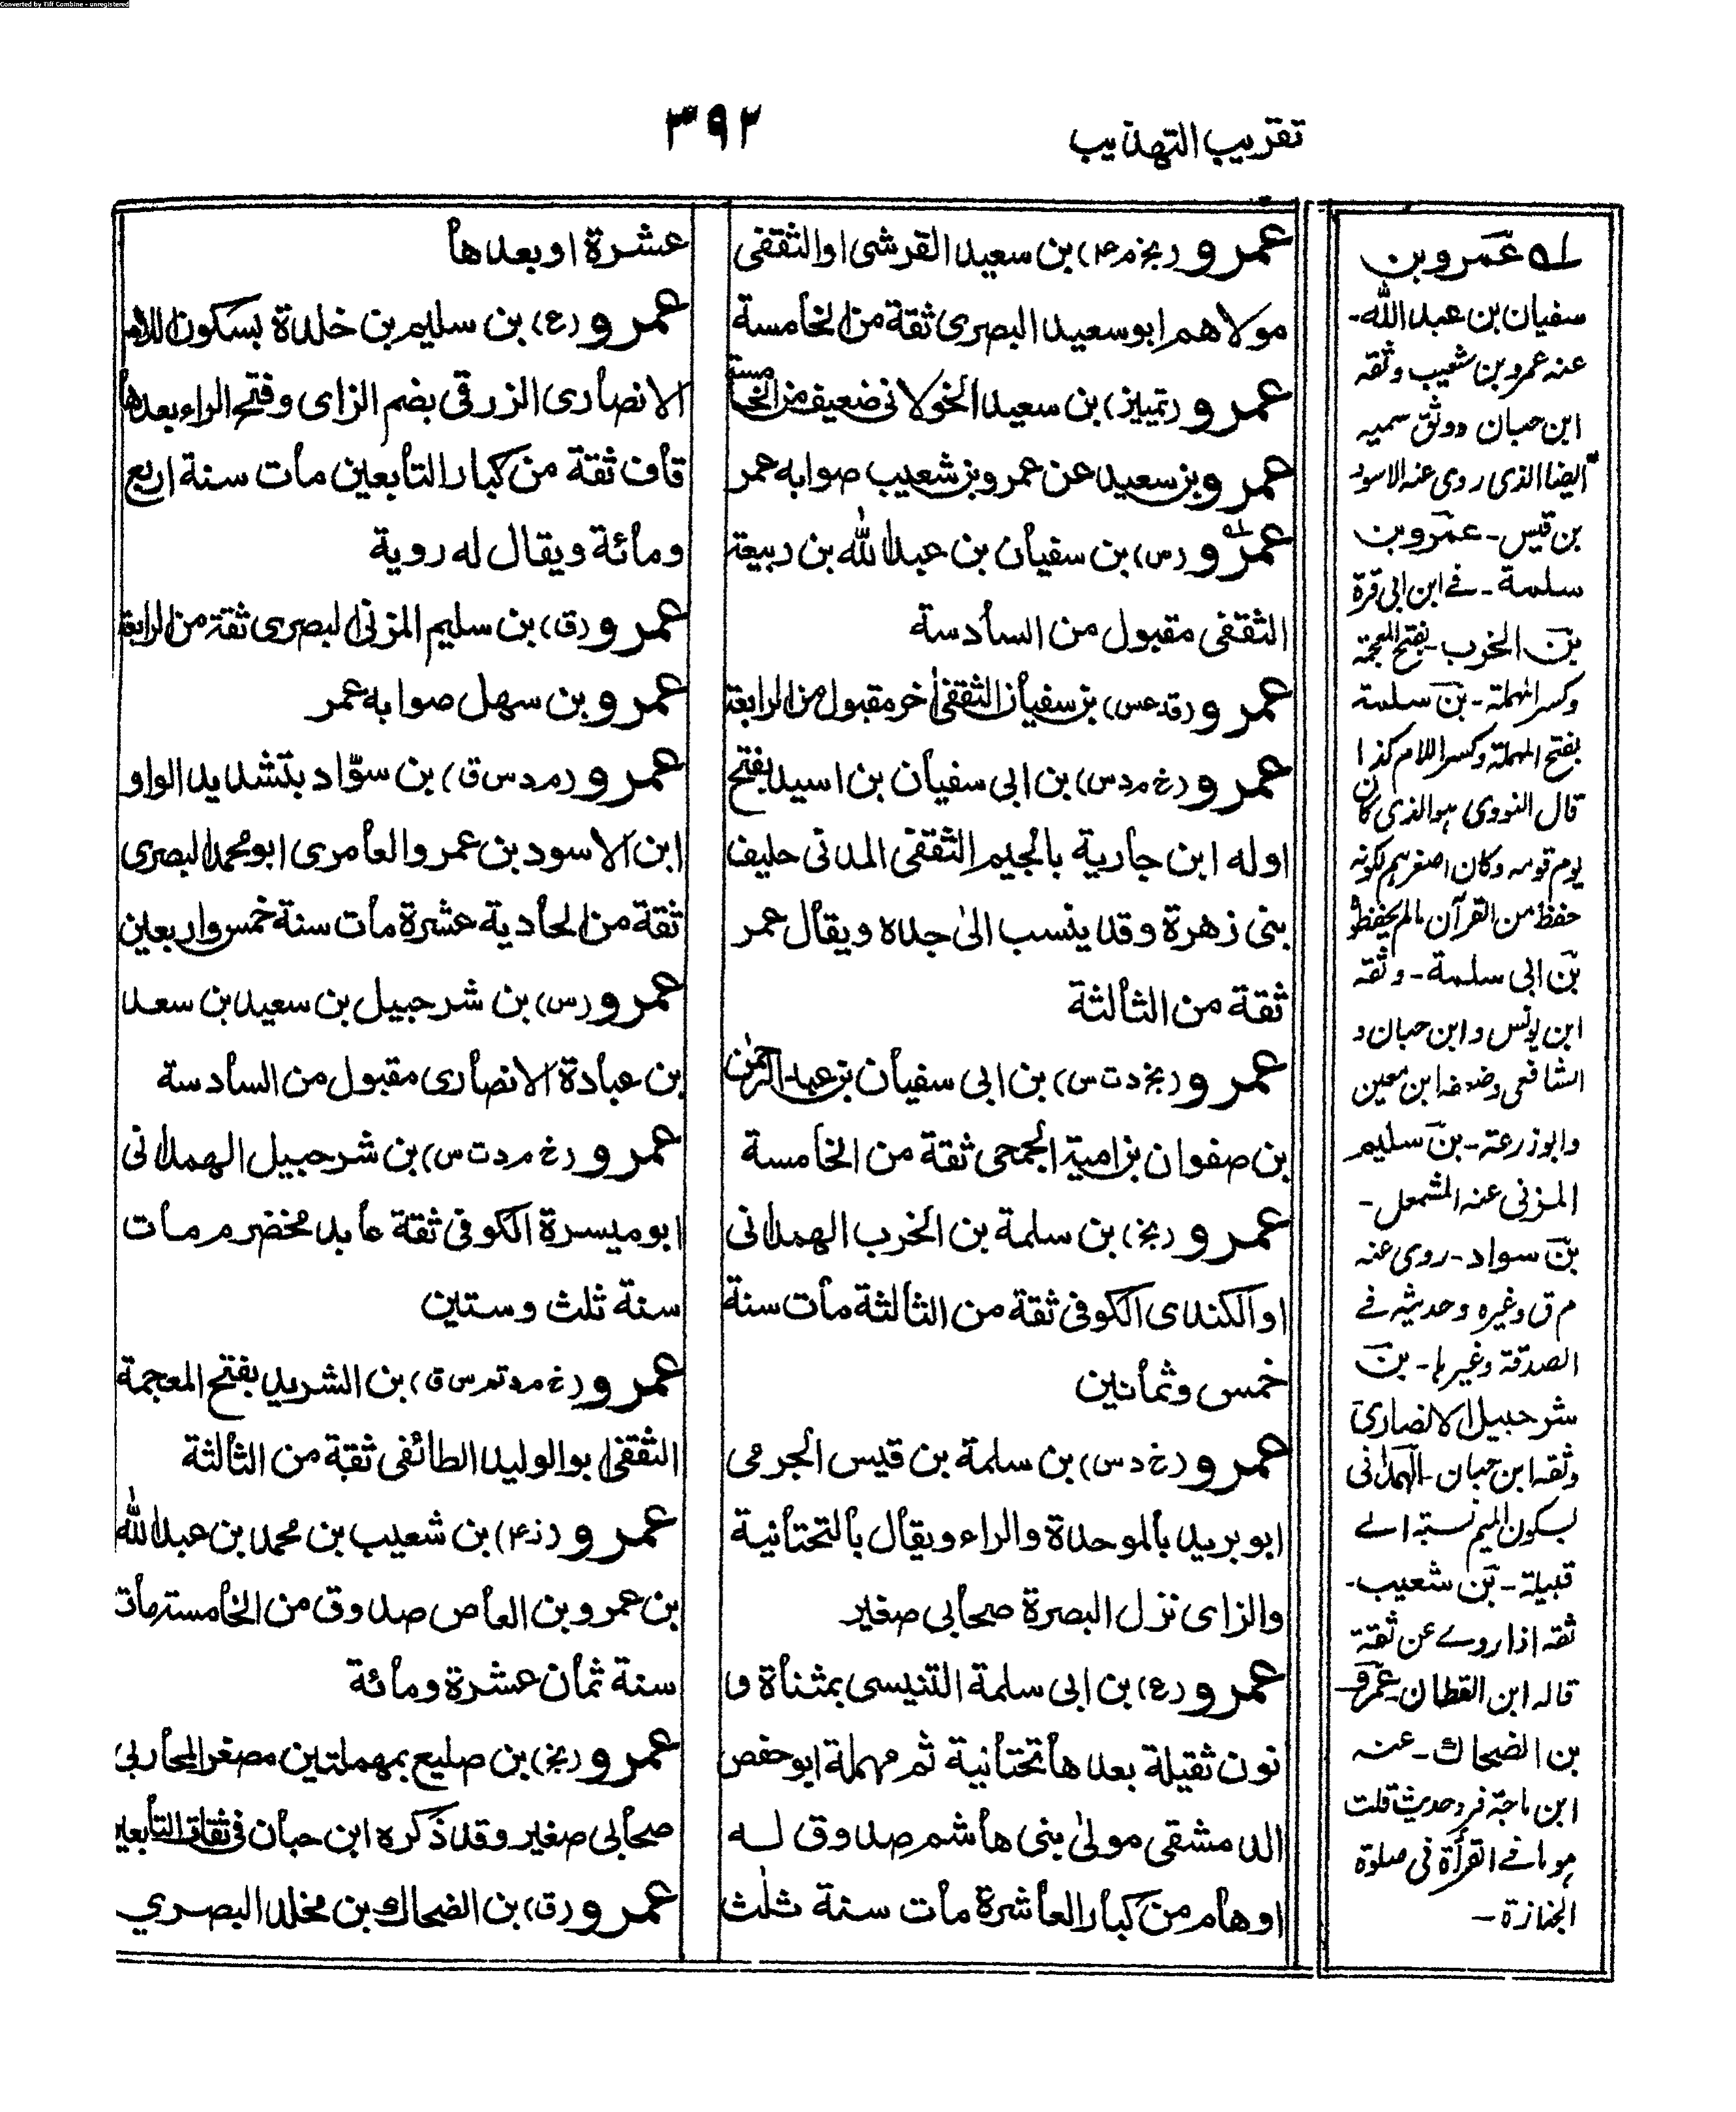 Converted by Tiff Combine - unregistered
تقريب التهذيب
٣٩٢
عمرو (بخ م ۴) بن سعيد القرشى او الثقفى
مولاهم ابو سعيد البصرى ثقة من الخامسة
عمرو (تمييز) بن سعيد الخولانى ضعيف من الخامسة
عمرو بن سعيد عن عمرو بن شعيب صوابه عمر
عمرو (س) بن سفيان بن عبد الله بن ربيعة
الثقفى مقبول من السادسة
عمرو (قد عس) بن سفيان الثقفى اخر مقبول من الرابعة
عمرو (خ م د س) بن ابى سفيان بن اسيد بفتح
اوله ابن جارية بالجيم الثقفى المدنى حليف
بنى زهرة وقد ينسب الى جده ويقال عمر
ثقة من الثالثة
عمرو (بخ د ت س) بن ابى سفيان بن عبد الرحمن
بن صفوان بن امية الجمحى ثقة من الخامسة
عمرو (بخ) بن سلمة بن الخرب الهمدانى
او الكندى الكوفى ثقة من الثالثة مات سنة
خمس وثمانين
عمرو (خ د س) بن سلمة بن قيس الجرمى
ابو بريد بالموحدة والراء ويقال بالتحتانية
والزاى نزل البصرة صحابى صغير
عمرو (ع) بن ابى سلمة التنيسى بمثناة و
نون ثقيلة بعدها تحتانية ثم مهملة ابو حفص
الدمشقى مولى بنى هاشم صدوق له
اوهام من كبار العاشرة مات سنة ثلث
عشرة او بعدها
عمرو (ع) بن سليم بن خلدة بسكون اللام
الانصارى الزرقى بضم الزاى وفتح الراء بعدها
قاف ثقة من كبار التابعين مات سنة اربع
ومائة ويقال له روية
عمرو (ق) بن سليم المزنى البصرى ثقة من الرابعة
عمرو بن سهل صوابه عمر
عمرو (م د س ق) بن سوّاد بتشديد الواو
ابن الاسود بن عمرو العامرى ابو محمد البصرى
ثقة من الحادية عشرة مات سنة خمس واربعين
عمرو (س) بن شرحبيل بن سعيد بن سعد
بن عبادة الانصارى مقبول من السادسة
عمرو (خ م د ت س) بن شرحبيل الهمدانى
ابو ميسرة الكوفى ثقة عابد مخضرم مات
سنة ثلث وستين
عمرو (خ م د تم س ق) بن الشريد بفتح المعجمة
الثقفى ابو الوليد الطائفى ثقة من الثالثة
عمرو (ز ۴) بن شعيب بن محمد بن عبد الله
بن عمرو بن العاص صدوق من الخامسة مات
سنة ثمان عشرة ومائة
عمرو (بخ) بن صليع بمهملتين مصغر المحاربى
صحابى صغير وقد ذكره ابن حبان فى ثقات التابعين
عمرو (ق) بن الضحاك بن مخلد البصري
له عمرو بن
سفيان بن عبد الله-
عنه عمرو بن شعيب وثقه
ابن حبان ووثق سميه
ايضا الذى روى عنه الاسود
بن قيس - عمرو بن
سلمة - فے ابن ابى قرة
بن الخرب - بفتح المعجمة
وكسر المهملة - بن سلمة
بفتح المهملة وكسر اللام كذا
قال النووى هو الذى كان
يوم قومه وكان اصغرهم لكونه
حفظ من القرآن مالم يحفظوا
بن ابى سلمة - وثقه
ابن يونس وابن حبان و
الشافعى وضعفه ابن معين
وابو زرعة - بن سليم
المزنى عنه المشمعل -
بن سواد - روى عنه
م ق وغيره وحديثه فے
الصدقة وغيرها - بن
شرحبيل الانصارى
وثقه ابن حبان - الهمدانى
بسكون الميم نسبة الے
قبيلة - بن شعيب -
ثقه اذا روے عن ثقة
قاله ابن القطان - عمرو
بن الضحاك - عنه
ابن ماجة فرد حديث قلت
هو ما فے القرأة فى صلوة
الجنازة -